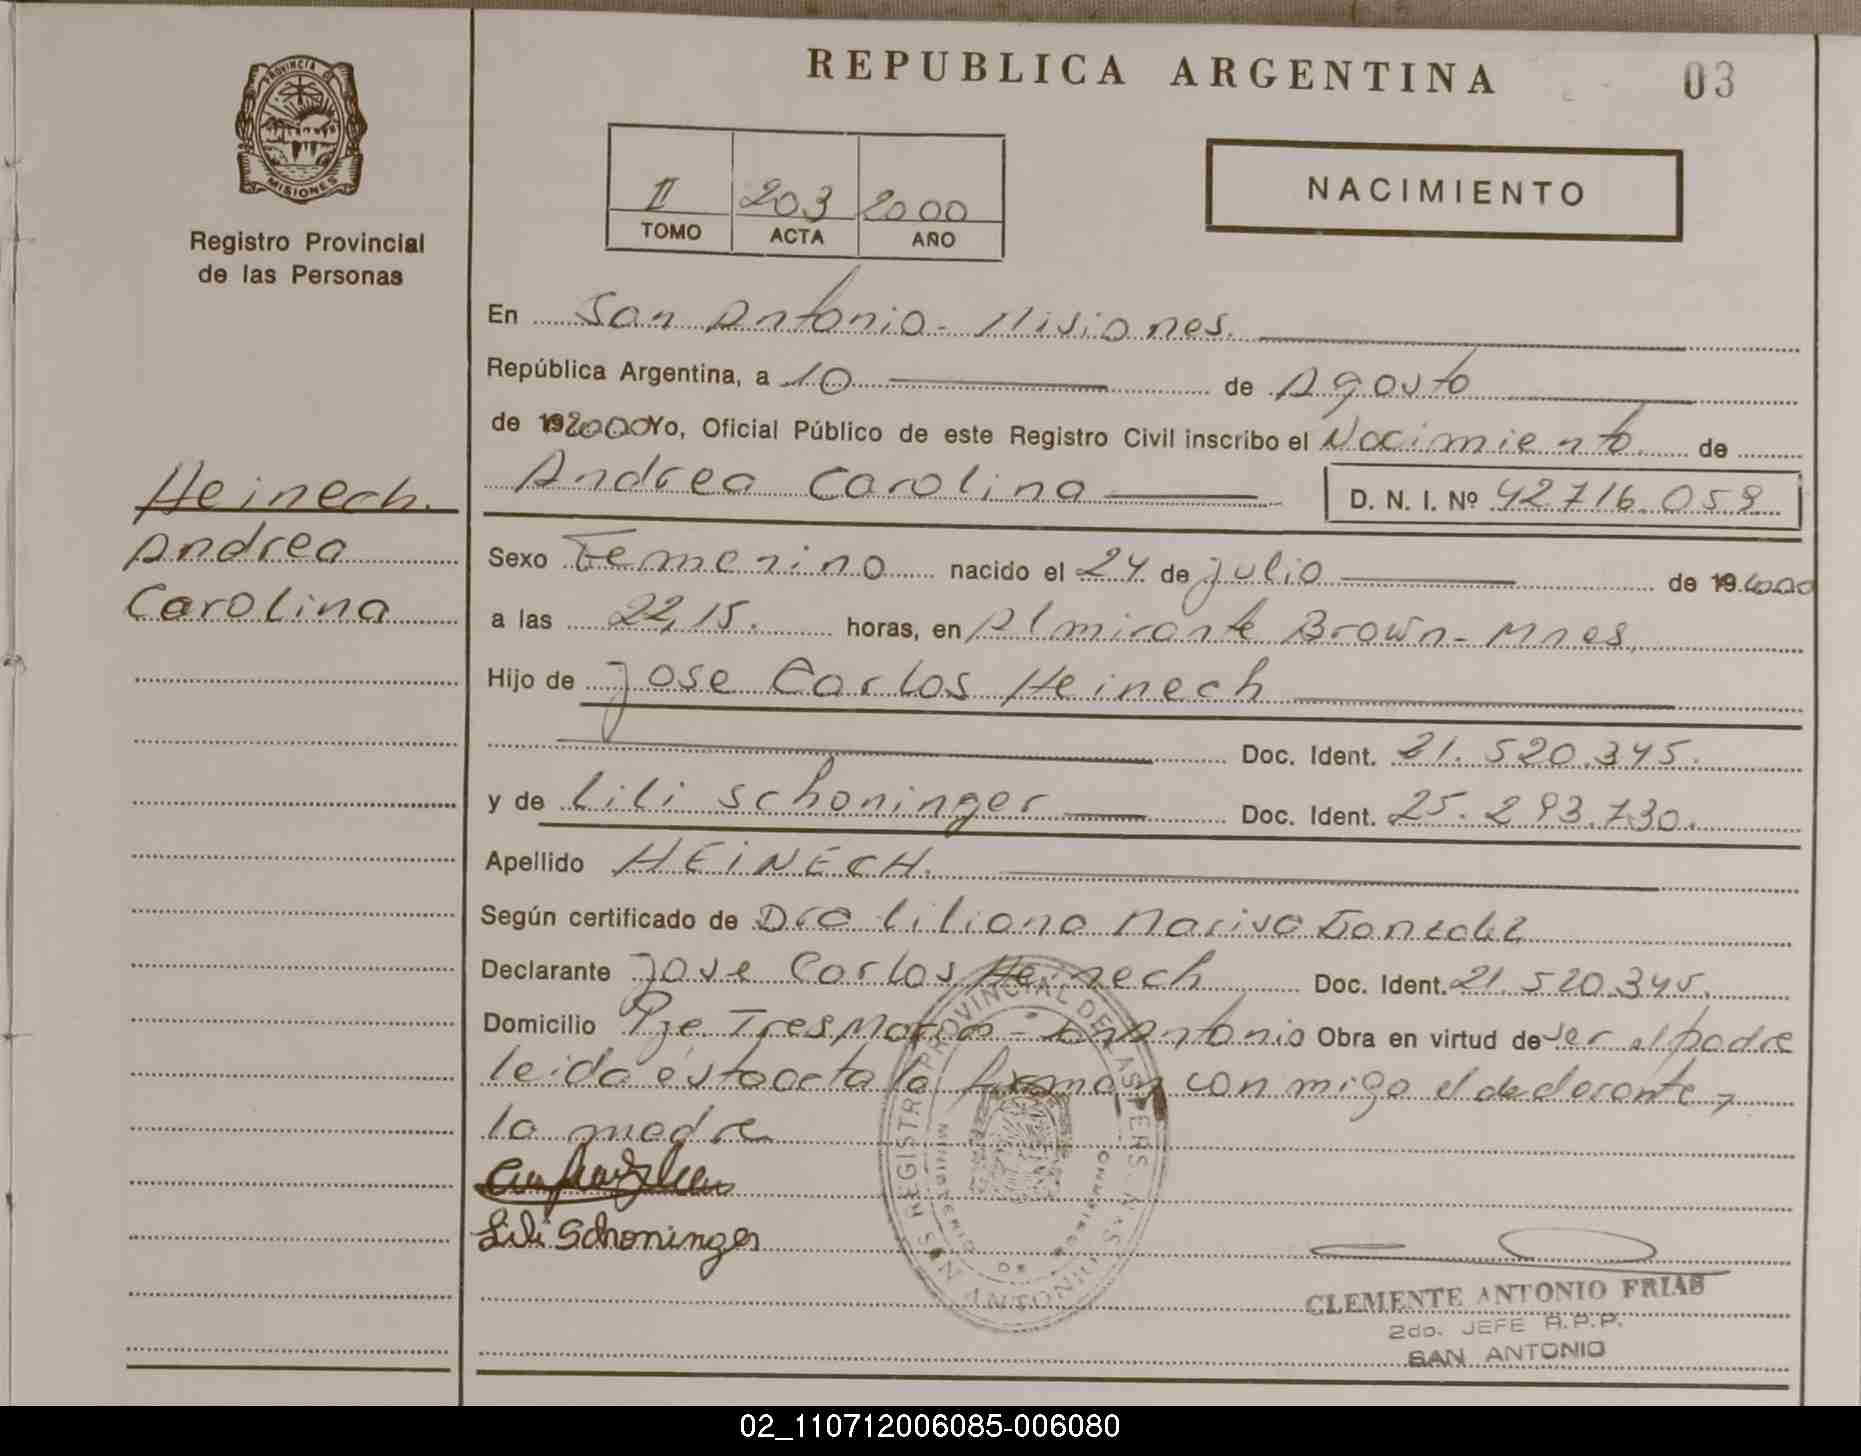 REPUBLICA ARGENTINA
03
PROVINCIA DE
MISIONES
Registro Provincial
de las Personas
II 203 2000
TOMO ACTA AÑO
NACIMIENTO
En San Antonio - Misiones.
República Argentina, a 10 de Agosto
de 192000 Yo, Oficial Público de este Registro Civil inscribo el Nacimiento de
Andrea Carolina D. N. I. Nº 42716.059
Heinech.
Andrea
Carolina
Sexo Femenino nacido el 24 de julio de 192000
a las 22,15. horas, en Almirante Brown - Mnes.
Hijo de Jose Carlos Heinech
Doc. Ident. 21.520.345.
y de Lili Schoninger Doc. Ident. 25.293.730.
Apellido HEINECH.
Según certificado de Dra Liliana Marisa Gonzalez
Declarante Jose Carlos Heinech Doc. Ident. 21.520.345.
Domicilio Pje. Tres Marias - San Antonio Obra en virtud de ser el padre
leida ésta acta la firman con migo el declarante y
la madre
Lili Schoninger
REGISTRO PROVINCIAL DE LAS PERSONAS
MINISTERIO DE GOBIERNO
SAN ANTONIO
CLEMENTE ANTONIO FRIAS
2do. JEFE R.P.P.
SAN ANTONIO
02_110712006085-006080